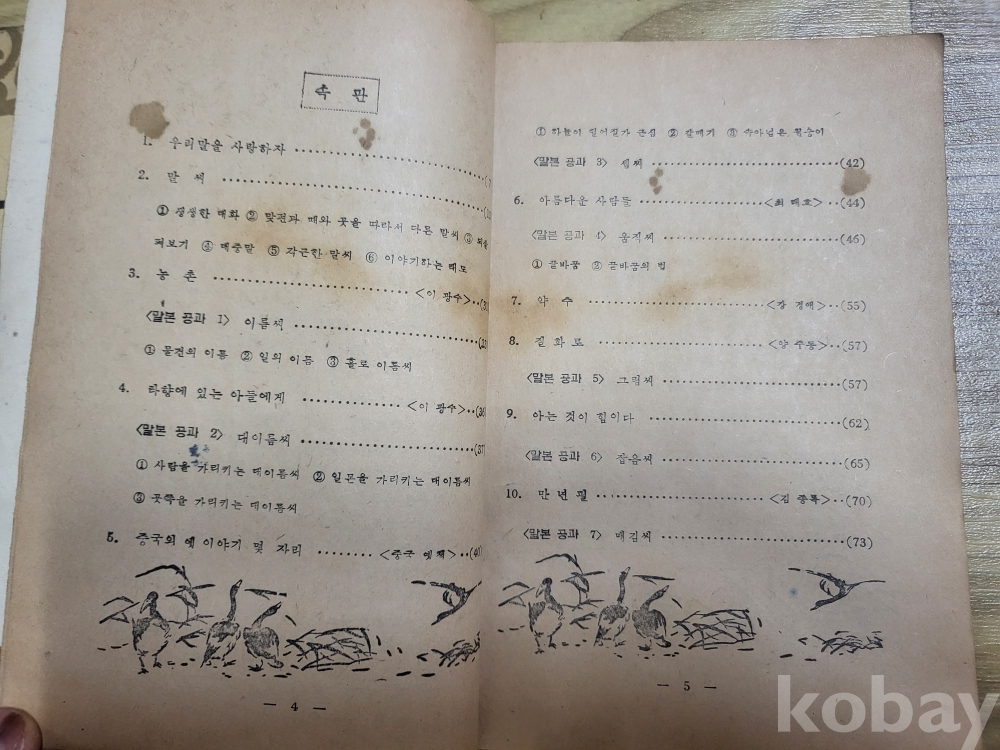 속 판
1. 우리말을 사랑하자
2. 말 씨
① 생생한 대화 ② 맞편과 때와 곳을 따라서 다른 말씨 ③
펴보기 ④ 대중말 ⑤ 각근한 말씨 ⑥ 이야기하는 태도
3. 농 촌 <이 광수>
<말본 공과 1> 이름씨
① 물건의 이름 ② 일의 이름 ③ 홀로 이름씨
4. 타향에 있는 아들에게 <이 광수>
<말본 공과 2> 대이름씨 (37)
① 사람을 가리키는 대이름씨 ② 일몬을 가리키는 대이름씨
③ 곳쪽을 가리키는 대이름씨
5. 중국의 옛 이야기 몇 자리 <중국 옛책>
— 4 —
① 하늘이 떨어질가 근심 ② 갈매기 ③ 속아넘은 원숭이
<말본 공과 3> 셈씨 (42)
6. 아름다운 사람들 <최 태호> (44)
<말본 공과 4> 움직씨 (46)
① 끝바꿈 ② 끝바꿈의 법
7. 약 수 <장 경애> (55)
8. 질화로 <양 주동> (57)
<말본 공과 5> 그림씨 (57)
9. 아는 것이 힘이다 (62)
<말본 공과 6> 잡음씨 (65)
10. 만 년 필 <김 종록> (70)
<말본 공과 7> 매김씨 (73)
— 5 —
kobay